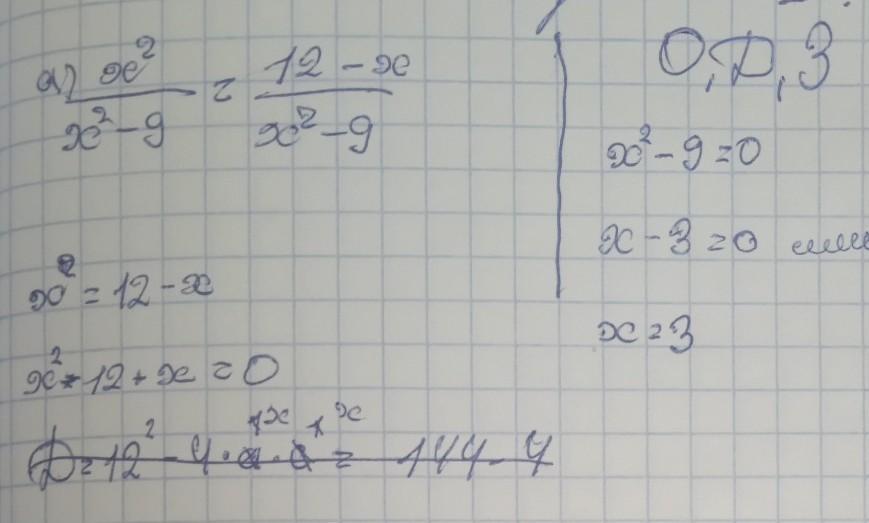 а) x²/(x²-9) = (12-x)/(x²-9)
x² = 12-x
x²-12+x=0
D=12²-4· · = 144-4
О,D,З
x²-9=0
x-3=0 или
x=3